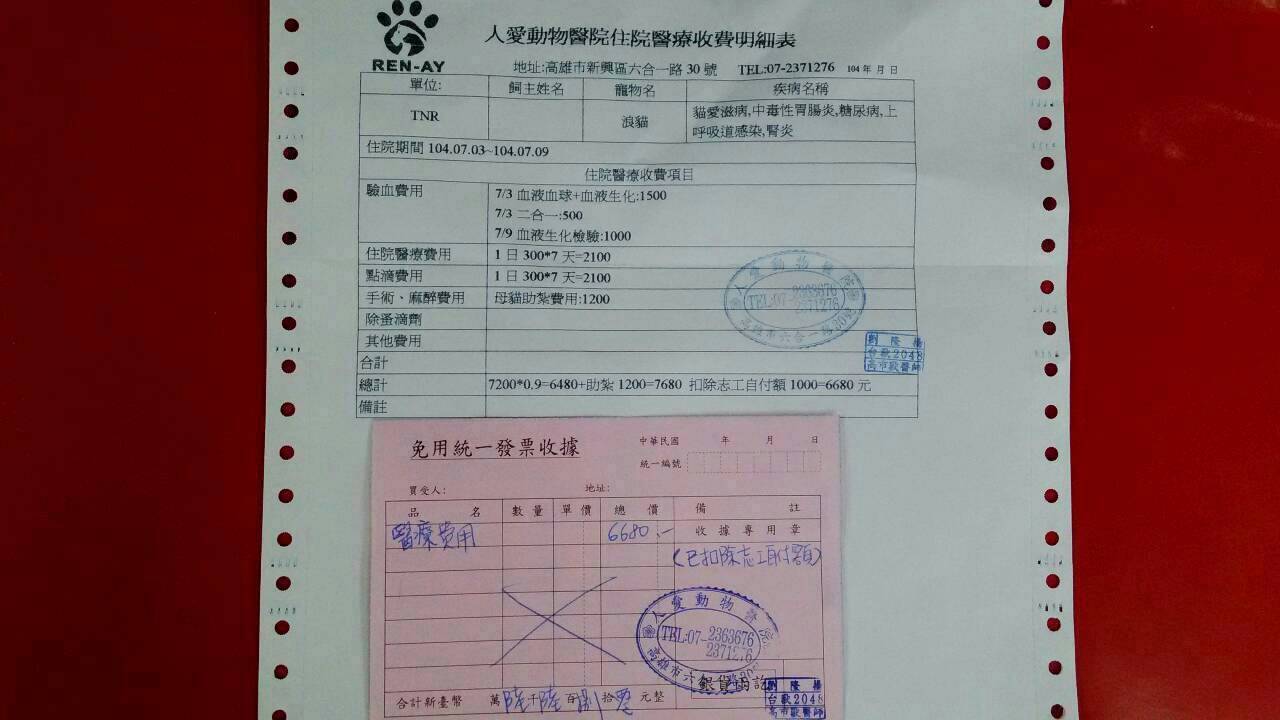 REN-AY
人愛動物醫院住院醫療收費明細表
地址:高雄市新興區六合一路 30 號 TEL:07-2371276 104 年 月 日
單位: 飼主姓名 寵物名 疾病名稱
TNR 浪貓 貓愛滋病,中毒性胃腸炎,糖尿病,上
呼吸道感染,腎炎
住院期間 104.07.03~104.07.09
住院醫療收費項目
驗血費用 7/3 血液血球+血液生化:1500
7/3 二合一:500
7/9 血液生化檢驗:1000
住院醫療費用 1 日 300*7 天=2100
點滴費用 1 日 300*7 天=2100
手術、麻醉費用 母貓助紮費用:1200
除蚤滴劑
其他費用
合計
總計 7200*0.9=6480+助紮 1200=7680 扣除志工自付額 1000=6680 元
備註
人愛動物醫院
TEL:07-2363676
2371276
高雄市六合一路30號
劉隆揚
台獸2048
高市獸醫師
免用統一發票收據
中華民國 年 月 日
統一編號
買受人: 地址:
品名 數量 單價 總價 備註
醫療費用 6680.- 收據專用章
(已扣除志工自付額)
人愛動物醫
TEL:07-2363676
2371276
高雄市六
銀貨兩訖
劉隆揚
台獸2048
高市獸醫師
合計新臺幣 萬陸千陸百捌拾零元整